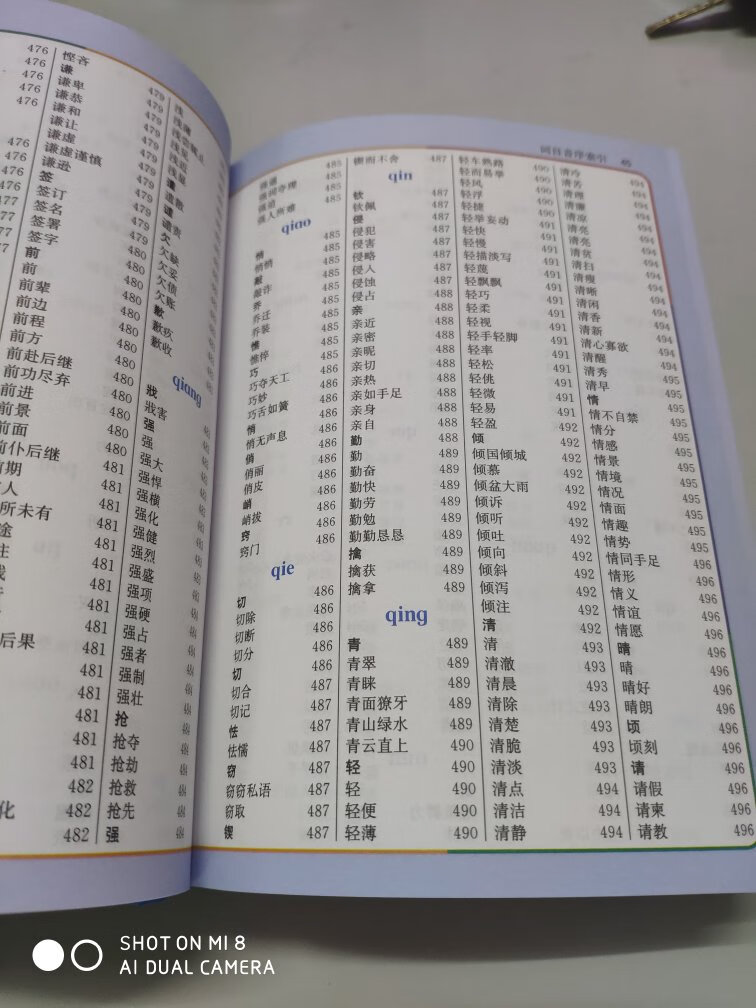 476
476
476
476
476
悭吝
谦
谦卑 479
谦恭 479
谦和 479
谦让 479
谦虚 479
谦虚谨慎 479
谦逊 479
签
签订 479
签名 479
签署 480
签字 480
前
前 480
前辈 480
前边 480
前程 480
前方 480
前赴后继 480
前功尽弃 480
前进 480
前景 480
前面 480
前仆后继 481
481
481
481
481
481
后果 481
481
481
481
482
化 482
482
浅
浅薄
浅见
遣
遣散
谴
谴责
欠
欠缺
欠妥
欠债
欠账
歉
歉疚
歉收
qiang
戕
戕害
强
强
强大
强悍
强横
强化
强健
强烈
强盛 484
强项 484
强硬 484
强占 484
强者 484
强制 484
强壮 484
抢
抢夺 484
抢劫 484
抢救 484
抢先 484
强
词目音序索引 65
强逼 485
强词夺理 485
强迫 485
强人所难 485
qiao
悄
悄悄 485
敲
敲诈 485
乔
乔迁 485
乔装 485
憔
憔悴 486
巧
巧夺天工 486
巧妙 486
巧舌如簧 486
悄
悄无声息 486
俏
俏丽 486
俏皮 486
峭
峭拔 486
窍
窍门 486
qie
切
切除 486
切断 486
切分 486
切
切合 487
切记 487
怯
怯懦 487
窃
窃窃私语 487
窃取 487
锲
锲而不舍 487
qin
钦
钦佩 487
侵
侵犯 487
侵害 487
侵略 487
侵入 487
侵蚀 487
侵占 487
亲
亲近 488
亲密 488
亲昵 488
亲切 488
亲热 488
亲如手足 488
亲身 488
亲自 488
勤
勤 488
勤奋 489
勤快 489
勤劳 489
勤勉 489
勤勤恳恳 489
擒
擒获 489
擒拿 489
qing
青
青翠 489
青睐 489
青面獠牙 489
青山绿水 489
青云直上 490
轻
轻 490
轻便 490
轻薄 490
轻车熟路 490
轻而易举 490
轻风 490
轻浮 490
轻捷 490
轻举妄动 490
轻快 491
轻慢 491
轻描淡写 491
轻蔑 491
轻飘飘 491
轻巧 491
轻柔 491
轻视 491
轻手轻脚 491
轻率 491
轻松 491
轻佻 491
轻微 491
轻易 491
轻盈 492
倾
倾国倾城 492
倾慕 492
倾盆大雨 492
倾诉 492
倾听 492
倾吐 492
倾向 492
倾斜 492
倾泻 492
倾注 492
清
清 492
清澈 493
清晨 493
清除 493
清楚 493
清脆 493
清淡 493
清点 494
清洁 494
清静 494
清冷 494
清苦 494
清理 494
清廉 494
清凉 494
清亮 494
清亮 494
清贫 494
清扫 494
清瘦 494
清晰 494
清闲 494
清香 494
清新 494
清心寡欲 494
清醒 495
清秀 495
清早 495
情
情不自禁 495
情分 495
情感 495
情景 495
情境 495
情况 495
情面 495
情趣 495
情势 495
情同手足 496
情形 496
情义 496
情谊 496
情愿 496
晴
晴 496
晴好 496
晴朗 496
顷
顷刻 496
请
请假 496
请柬 496
请教 496
SHOT ON MI 8
AI DUAL CAMERA